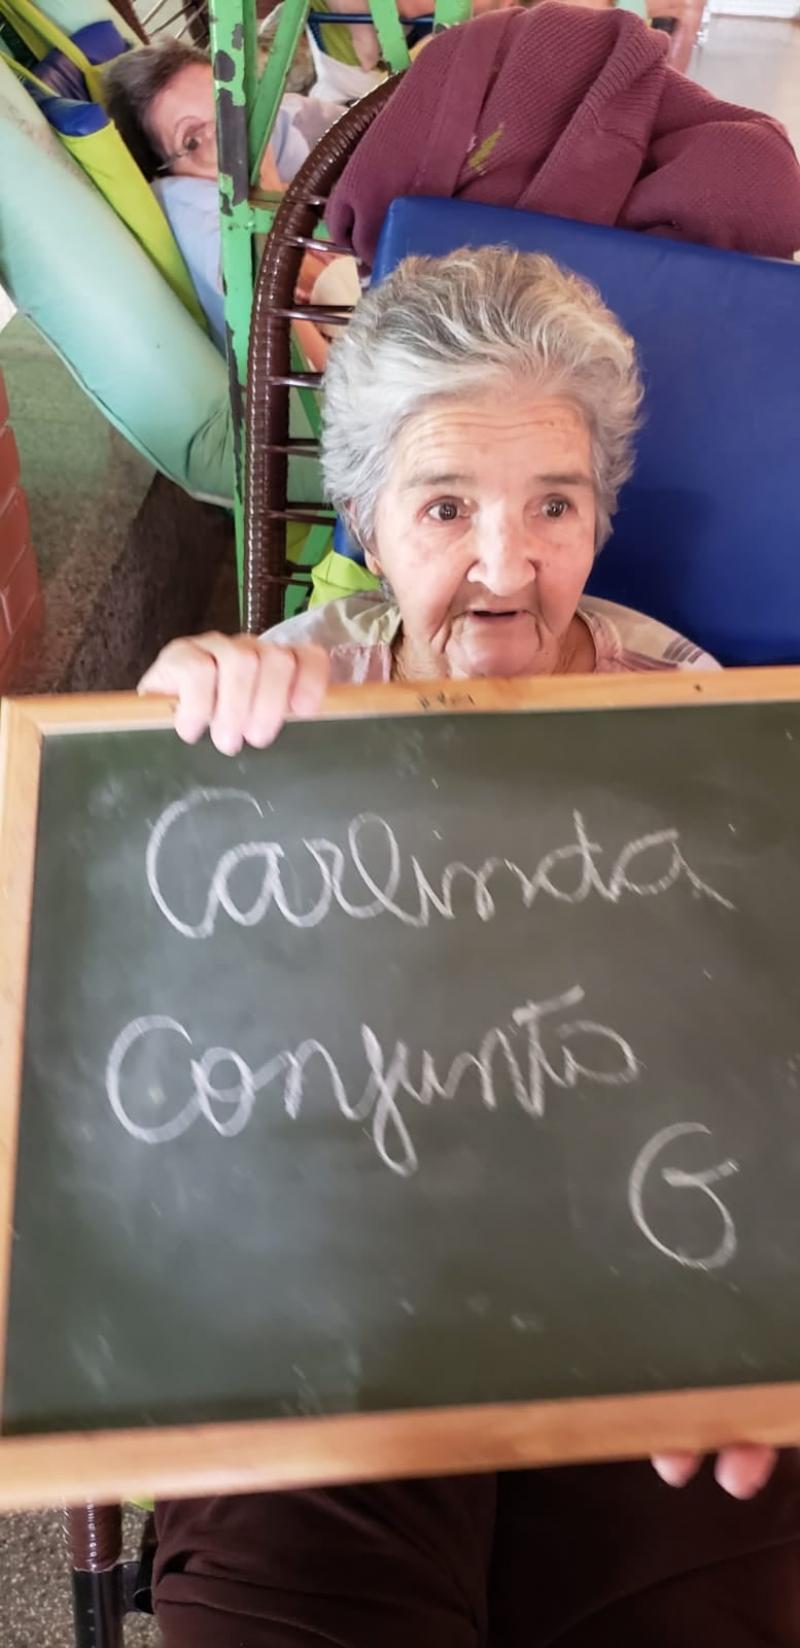 Carlinda
Conjunto
G